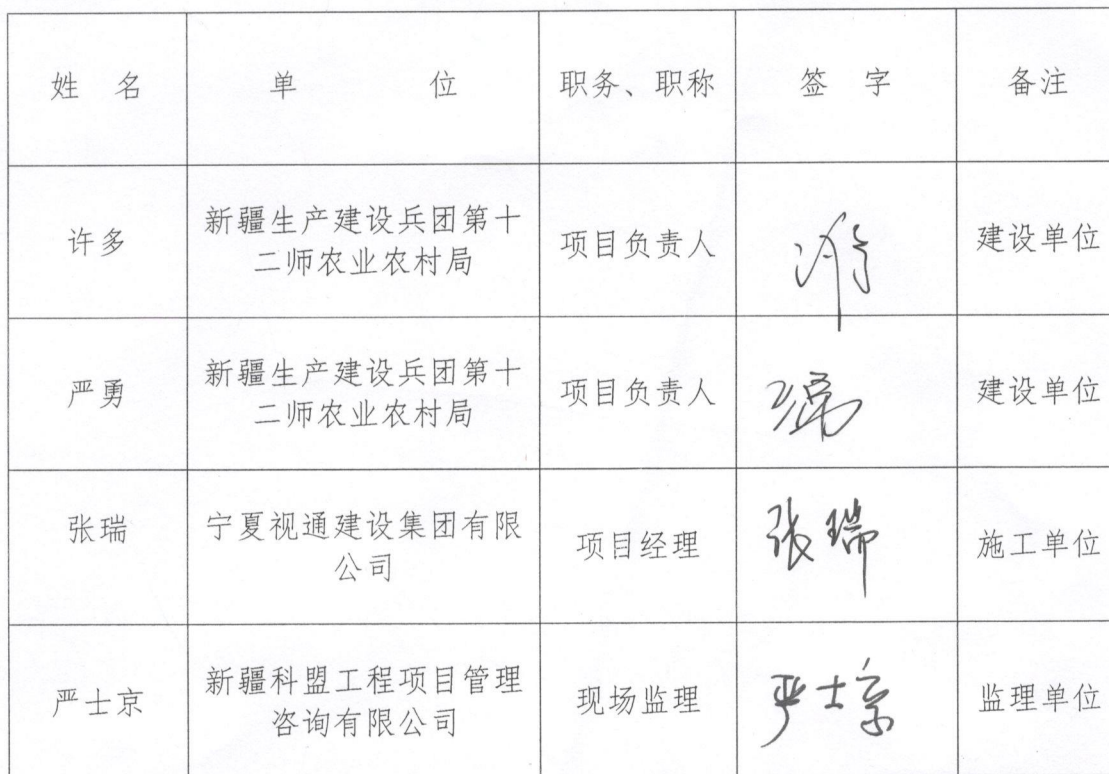 姓 名 单 位 职务、职称 签 字 备注
许多 新疆生产建设兵团第十二师农业农村局 项目负责人 建设单位
严勇 新疆生产建设兵团第十二师农业农村局 项目负责人 建设单位
张瑞 宁夏视通建设集团有限公司 项目经理 张瑞 施工单位
严士京 新疆科盟工程项目管理咨询有限公司 现场监理 严士京 监理单位